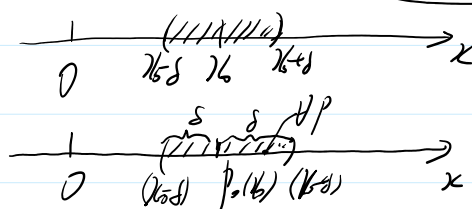 x
0 x₀-δ x₀ x₀+δ
δ δ ∀P
0 (x₀-δ) P₀(x₀) (x₀+δ) x